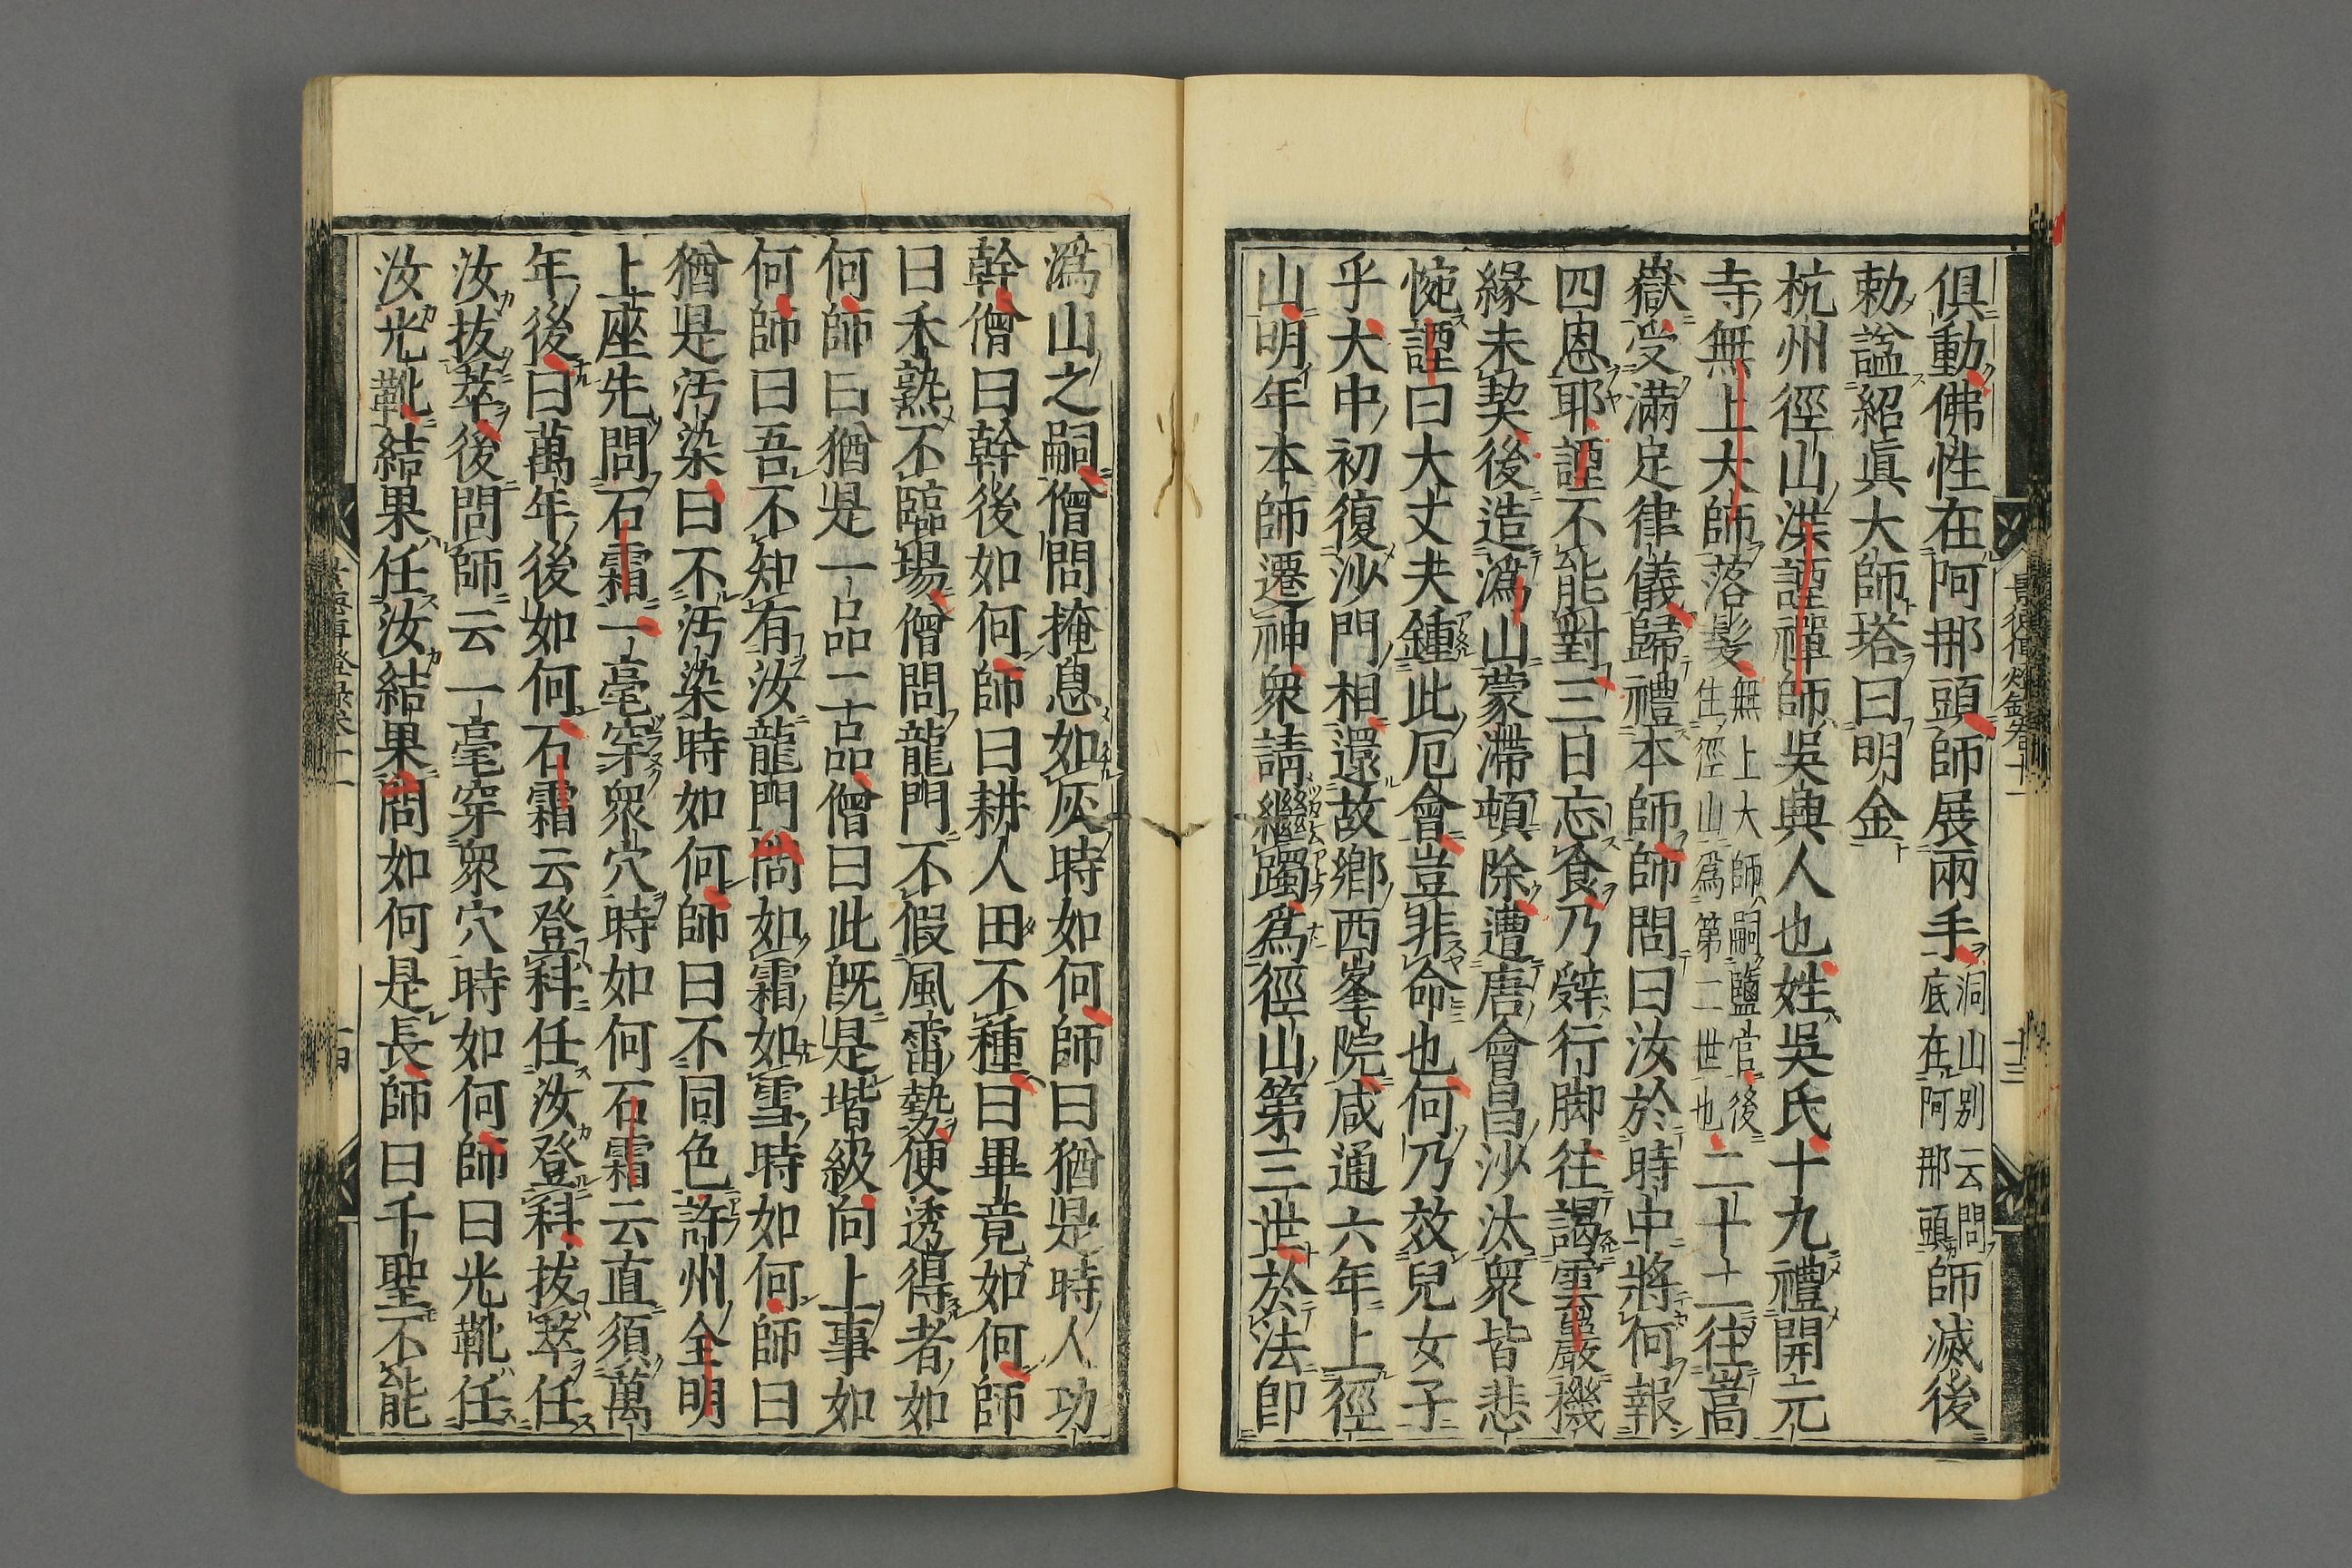 俱動佛性在阿那頭師展兩手洞山別云問底在阿那頭師滅後
勅諡紹眞大師塔曰明金
杭州徑山洪諲禪師吳興人也姓吳氏十九禮開元
寺無上大師落髮無上大師嗣鹽官後住徑山爲第二世也二十二往嵩
嶽受滿足律儀歸禮本師師問曰汝於時中將何報
四恩耶諲不能對三日忘食乃辭行脚往謁雲巖機
緣未契後造溈山蒙滯頓除遭唐會昌沙汰衆皆悲
惋諲曰大丈夫鍾此厄會豈非命也何乃效兒女子
乎大中初復沙門相還故鄉西峯院咸通六年上徑
山明年本師遷神衆請繼躅爲徑山第三世於法即
溈山之嗣僧問掩息如灰時如何師曰猶是時人功
幹僧曰幹後如何師曰耕人田不種曰畢竟如何師
曰禾熟不臨場僧問龍門不假風雷勢便透得者如
何師曰猶是一品二品僧曰此既是堦級向上事如
何師曰吾不知有汝龍門問如霜如雪時如何師曰
猶是汚染曰不汚染時如何師曰不同色許州全明
上座先問石霜一毫穿衆穴時如何石霜云直須萬
年後曰萬年後如何石霜云登科任汝登科拔萃任
汝拔萃後問師云一毫穿衆穴時如何師曰光靴任
汝光靴結果任汝結果問如何是長師曰千聖不能